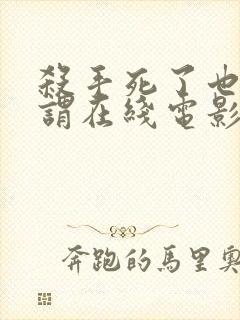 殺手死了也
謂在綫電影
奔跑的馬里奧